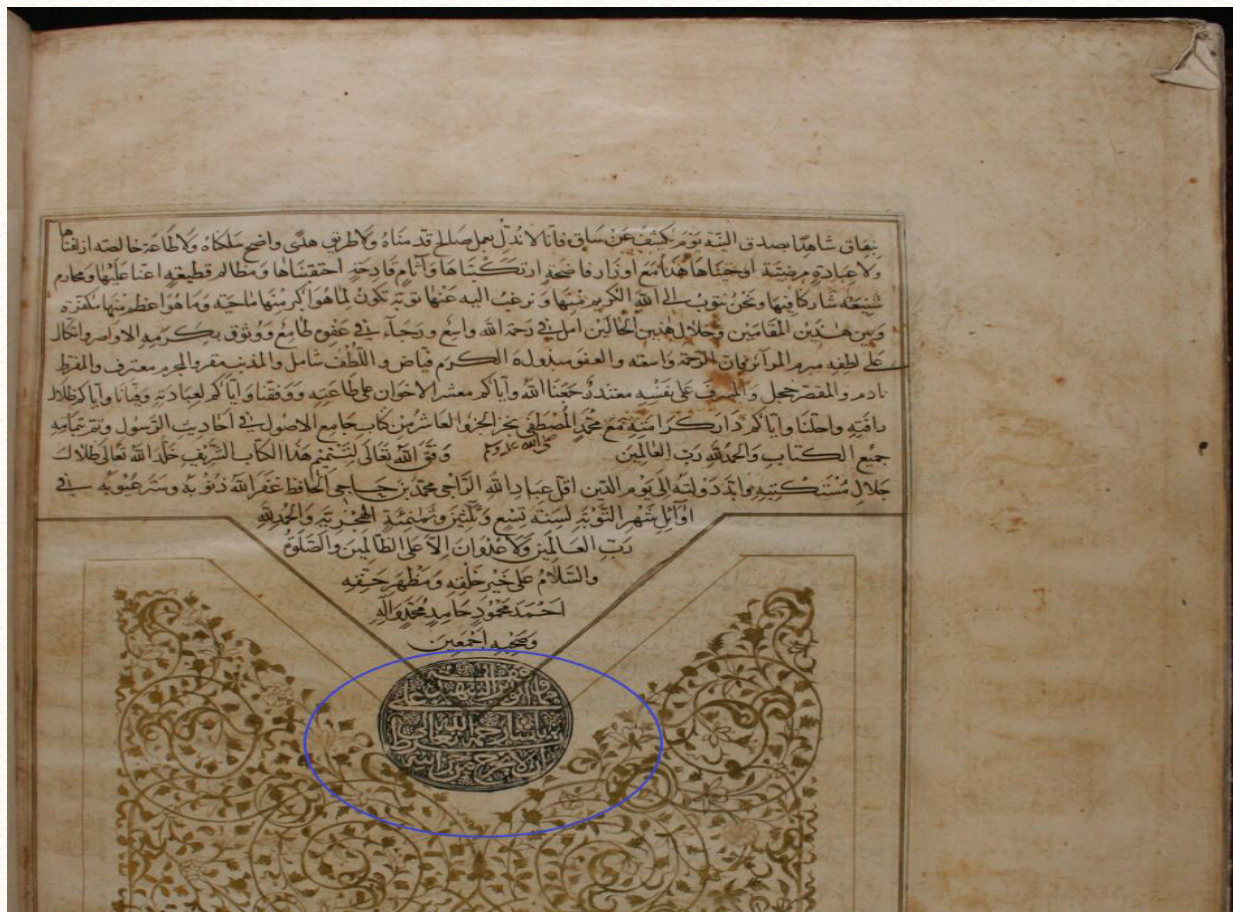 بنفاق شاهدًا بصدق النية يوم كشف عن ساق فانا لا ندل بعمل صالح قدمناه ولا طريق هدى واضح سلكناه ولا طاعة خالصه ازلفناها
ولا عبادة مرضية هذا مع اوزار فاضحة ارتكبناها وآثام فادحة احتقبناها ومظالم قطيعه اعنا عليها ومحارم
شنيعة شاركنا فيها ونحن نتوب الى الله الكريم منها ونرغب اليه عنها توبة تكون لما هو اكبر منها ماحية وما هو اعظم منها مكفرة
وبين هذين المقامين وخلال هذين الحالين امل في رحمة الله واسع ورجاء في عفوه طامع ووثوق بكرمه الاواصر واتكال
على لطفه مبرم المرائر فان الرحمة واسعه والعفو مبذول و الكرم فياض و اللطف شامل والمذنب مقر والمجرم معترف والمفرط
نادم والمقصر خجل والمسرف على نفسه معتذر جمعنا الله واياكم معشر الاخوان على طاعته ووفقنا واياكم لعبادته
واحلنا واياكم دار كرامته مع محمد المصطفى نجز الجزو العاشر من كتاب جامع الاصول في احاديث الرسول وتم بتمامه
جميع الكتاب والحمد لله رب العالمين صلى الله عليه وسلم وفق الله تعالى لتتميم هذا الكتاب الشريف خلد الله تعالى ظلال
جلال وابد دولته الى يوم الدين اقل عباد الله الراجي محمد بن حاجي الحافظ غفر الله ذنوبه وستر عيوبه في
اوائل شهر التوبة لسنة تسع وثلثين وثمانمئة الهجرية والحمد لله
رب العالمين ولا عدوان الا على الظالمين والصلوة
والسلام على خير خلقه ومظهر حقه
احمد محمود حامد محمد وآله
وصحبه اجمعين
وقف
الوزير الشهيد على
باشا رحمه الله تعالى
ان لا يخرج من